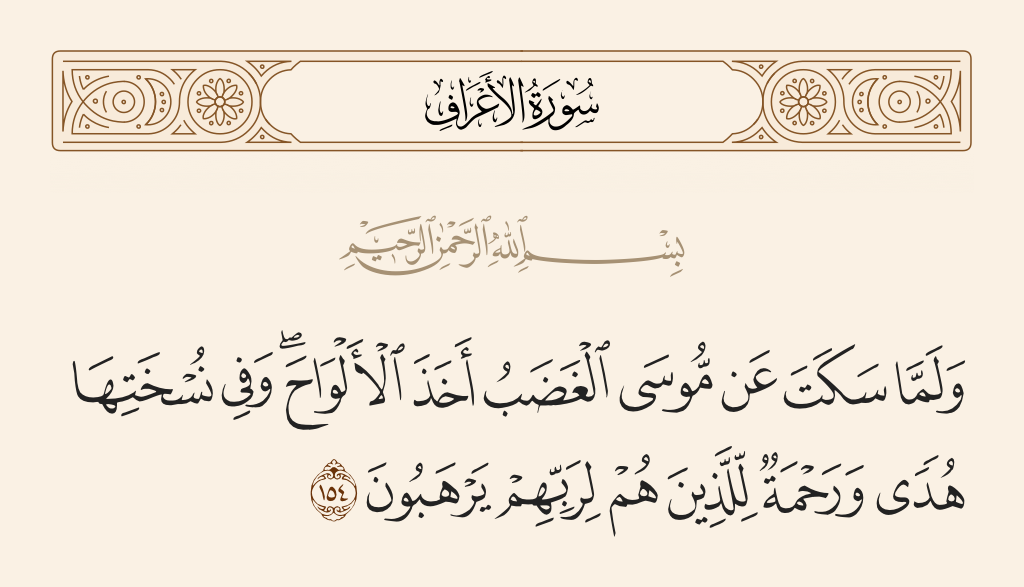 سُورَةُ الأَعْرَافِ
بِسْمِ ٱللَّهِ ٱلرَّحْمَٰنِ ٱلرَّحِيمِ
وَلَمَّا سَكَتَ عَن مُّوسَى ٱلْغَضَبُ أَخَذَ ٱلْأَلْوَاحَ ۖ وَفِى نُسْخَتِهَا
هُدًى وَرَحْمَةٌ لِّلَّذِينَ هُمْ لِرَبِّهِمْ يَرْهَبُونَ ١٥٤